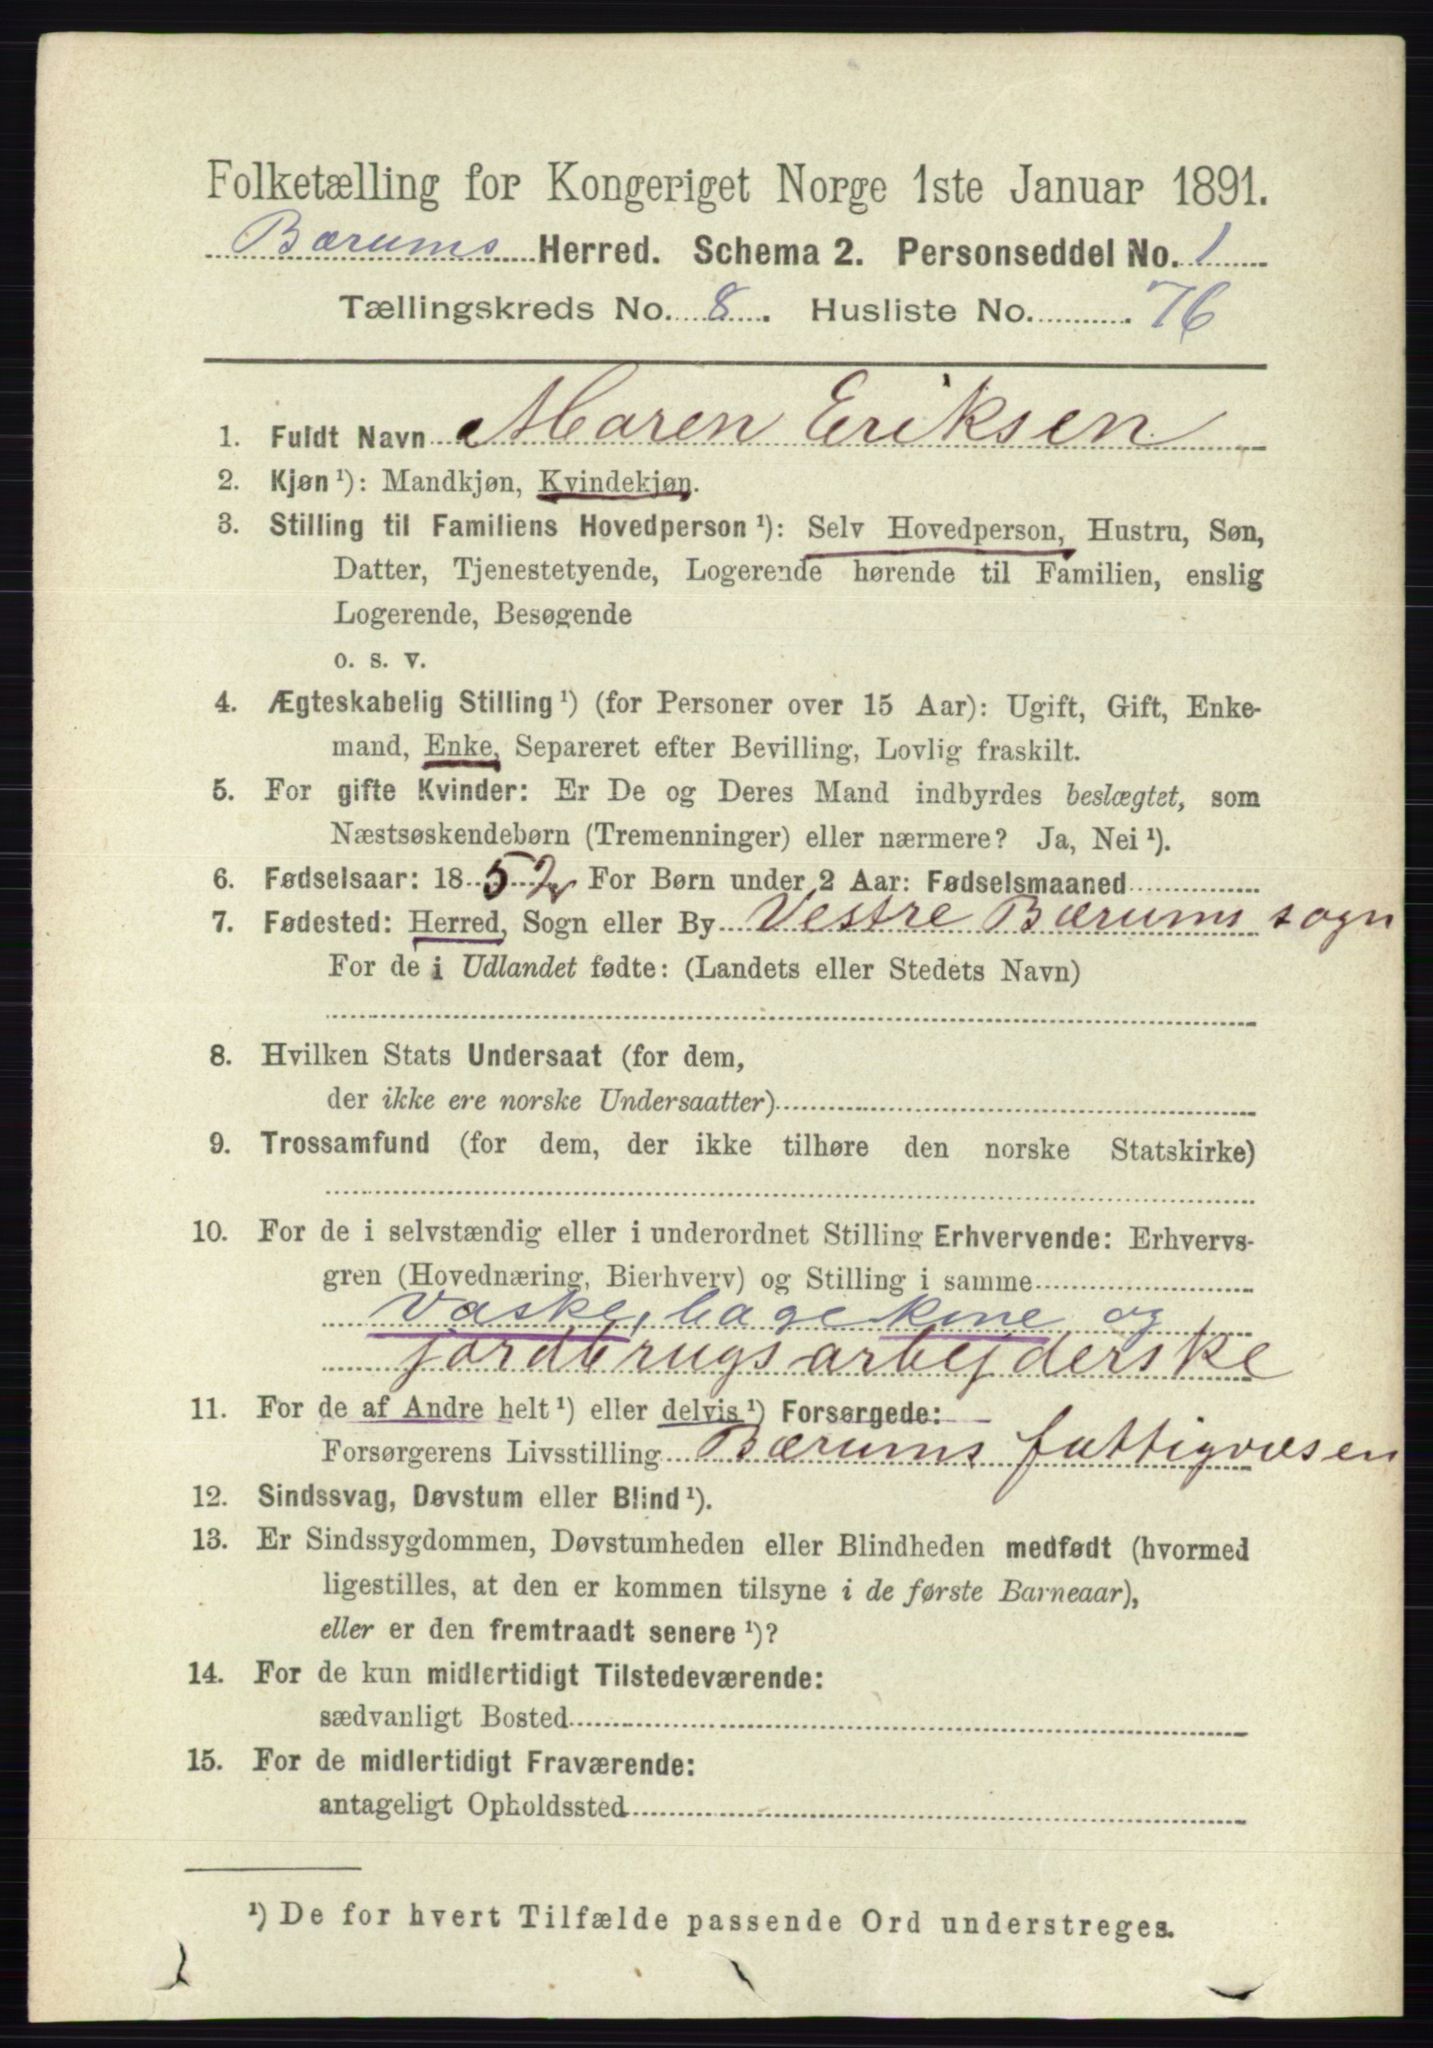 Folketælling for Kongeriget Norge 1ste Januar 1891.
Bærums Herred. Schema 2. Personseddel No. 1
Tællingskreds No. 8. Husliste No. 76
1. Fuldt Navn Maren Eriksen
2. Kjøn ¹): Mandkjøn, Kvindekjøn.
3. Stilling til Familiens Hovedperson ¹): Selv Hovedperson, Hustru, Søn,
Datter, Tjenestetyende, Logerende hørende til Familien, enslig
Logerende, Besøgende
o. s. v.
4. Ægteskabelig Stilling ¹) (for Personer over 15 Aar): Ugift, Gift, Enke-
mand, Enke, Separeret efter Bevilling, Lovlig fraskilt.
5. For gifte Kvinder: Er De og Deres Mand indbyrdes beslægtet, som
Næstsøskendebørn (Tremenninger) eller nærmere? Ja, Nei ¹).
6. Fødselsaar: 1852 For Børn under 2 Aar: Fødselsmaaned
7. Fødested: Herred, Sogn eller By Vestre Bærums sogn
For de i Udlandet fødte: (Landets eller Stedets Navn)
8. Hvilken Stats Undersaat (for dem,
der ikke ere norske Undersaatter)
9. Trossamfund (for dem, der ikke tilhøre den norske Statskirke)
10. For de i selvstændig eller i underordnet Stilling Erhvervende: Erhvervs-
gren (Hovednæring, Bierhverv) og Stilling i samme
Vaske, bagekone og
jordbrugsarbejderske
11. For de af Andre helt ¹) eller delvis ¹) Forsørgede:
Forsørgerens Livsstilling Bærums fattigvæsen
12. Sindssvag, Døvstum eller Blind ¹).
13. Er Sindssygdommen, Døvstumheden eller Blindheden medfødt (hvormed
ligestilles, at den er kommen tilsyne i de første Barneaar),
eller er den fremtraadt senere ¹)?
14. For de kun midlertidigt Tilstedeværende:
sædvanligt Bosted
15. For de midlertidigt Fraværende:
antageligt Opholdssted
¹) De for hvert Tilfælde passende Ord understreges.